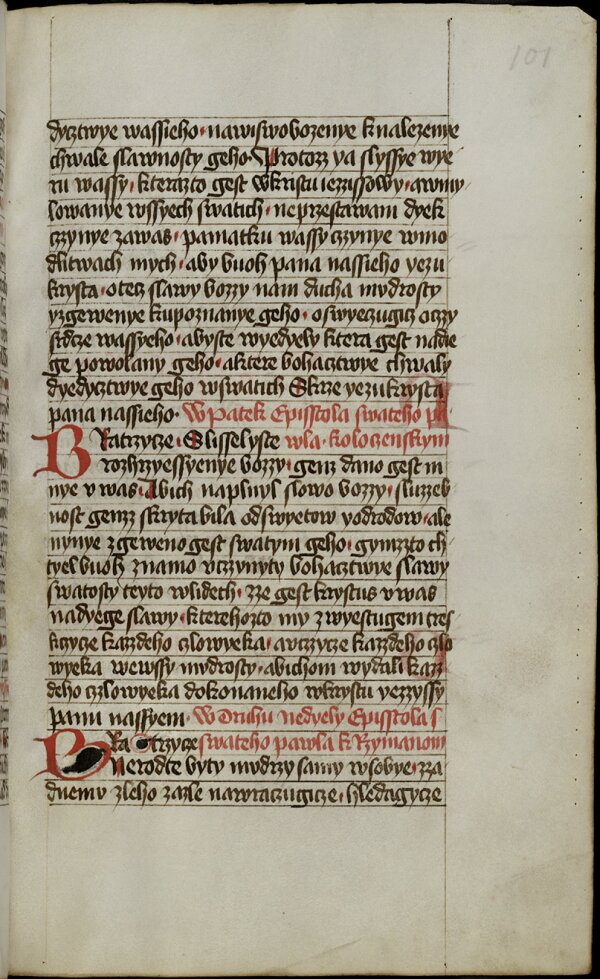 101
dycztwye wassieho · nawiswobozenye knalezenye
chwale slawnosty geho · Protozz ya slyssye wye
ru wassy · kterazto gest wkristu iezzissowy · awmy
lowanye wssyech swatich · neprzestawam dyek
czzynye zawas · pamatku wassy czzynye wmo
dlitwach mych · aby buoh pana nassieho yezu
krysta · otecz slawy bozzy nam ducha mudrosty
yzgewenye kupoznanye geho · oswyeczugicz oczzy
srdcze wassyeho · abyste wyedyely ktera gest nadie
ge powolany geho · aktere bohacztwye chwaly
dyedycztwye geho wswatich Skrze yezukrysta
pana nassieho · W Patek Episstola swateho pa
Bratrzycze · Slisselyste wla · kolocenskym
rozhrzyessyenye bozzy · genz dano gest m
nye v was · Abich naplnyl slowo bozzy · sluzeb
nost genzz skryta bila odswyetow yodrodow · ale
nynye zgeweno gest swatym geho · gymzzto ch
tyel buoh znamo vczynyty bohacztwye slawy
swatosty teyto wlidech · zze gest krystus v was
nadyege slawy · kterehozto my zwyestugem tres
kczycze kazzdeho czlowyeka · avczycze kazzdeho czlo
wyeka wewssy mudrosty · abichom wydali kazz
deho czlowyeka dokonaneho wkrystu yezzyssy
panu nassyem · W Druhu nedyely Episstola s
Bratrzycze swateho pawla k Rzymanom
Nerodte byty mudrzy samy wsobye · zza
dnemu zleho zazle nawraczugicze · hledagycze